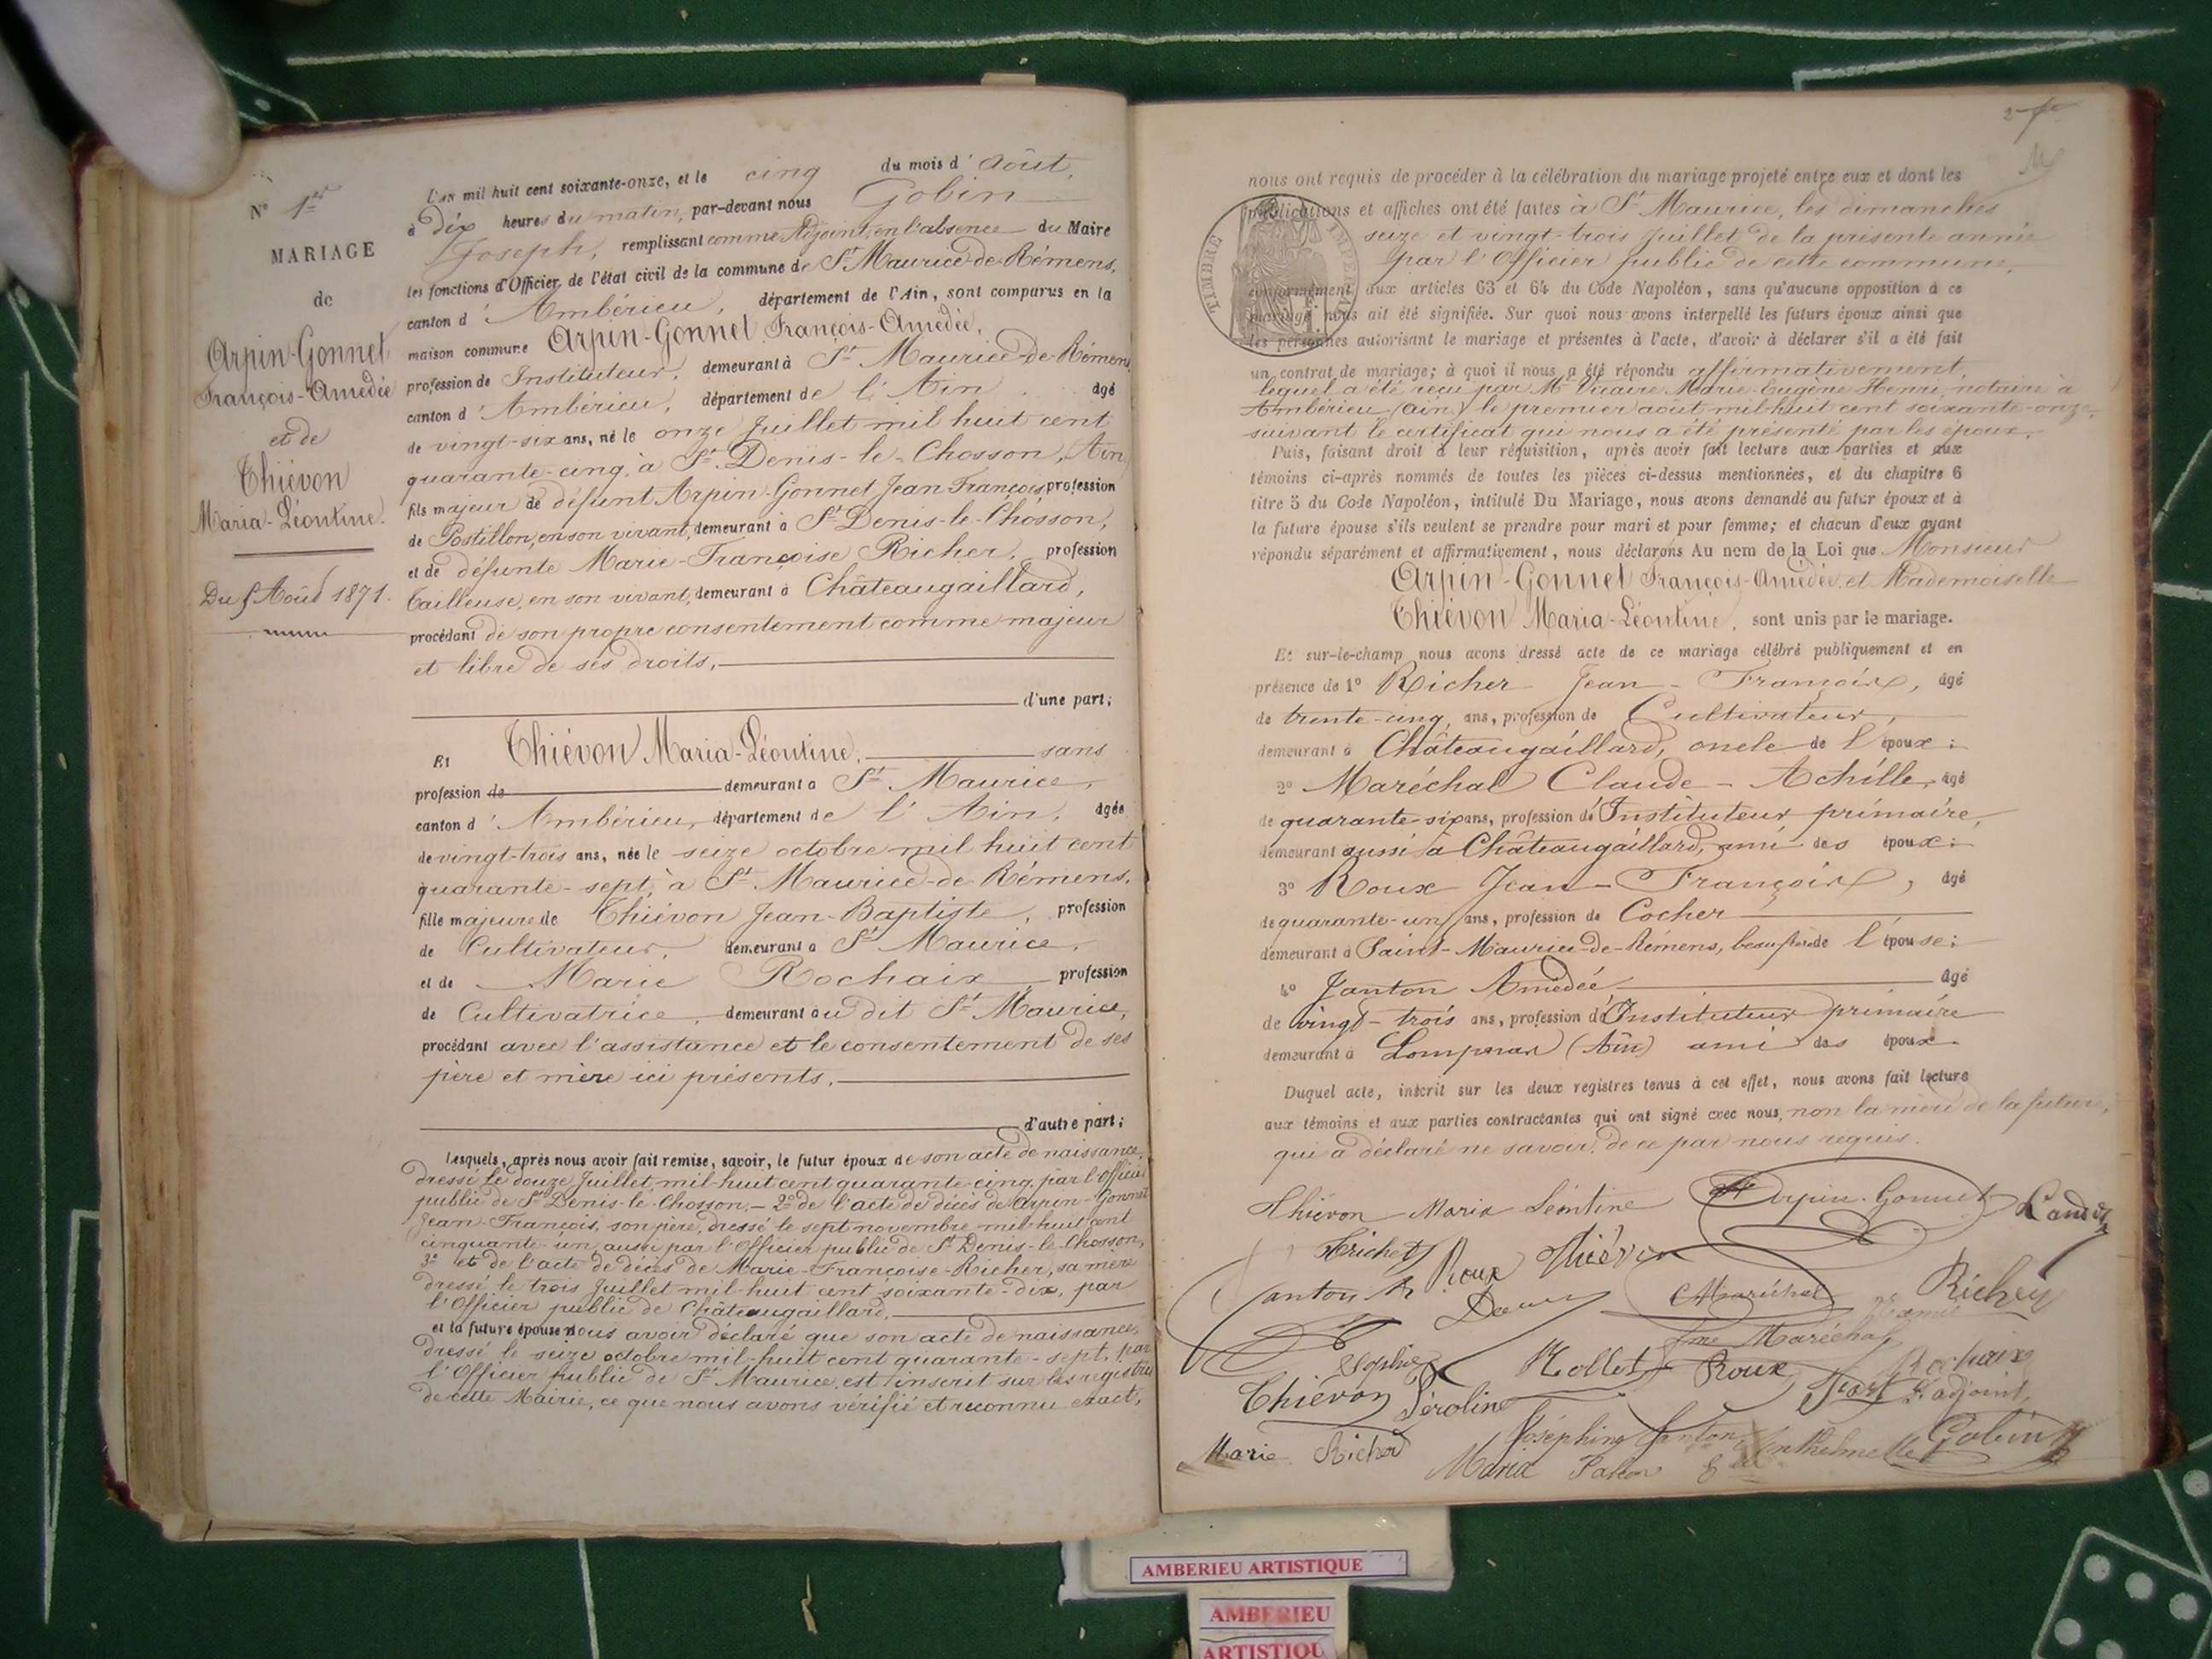 N° 1er
MARIAGE
de
Arpin-Gonnet
François-Amédée
et de
Thiévon
Maria-Léontine.
Du 5 Août 1871.
L'an mil huit cent soixante-onze, et le cinq du mois d'Août,
à dix heures du matin, par-devant nous Gobin
Joseph, remplissant comme Adjoint, en l'absence du Maire
les fonctions d'Officier de l'état civil de la commune de St Maurice-de-Rémens,
canton d'Ambérieu, département de l'Ain, sont comparus en la
maison commune Arpin-Gonnet François-Amédée,
profession de Instituteur, demeurant à St Maurice-de-Rémens
canton d'Ambérieu, département de l'Ain. âgé
de vingt-six ans, né le onze Juillet mil huit cent
quarante-cinq, à St Denis-le-Chosson, Ain
fils majeur de défunt Arpin-Gonnet Jean François, profession
de Postillon, en son vivant, demeurant à St Denis-le-Chosson,
et de défunte Marie-Françoise Richer, profession
Tailleuse, en son vivant, demeurant à Châteaugaillard,
procédant de son propre consentement comme majeur
et libre de ses droits,
d'une part;
Et Thiévon Maria-Léontine, sans
profession de demeurant à St Maurice,
canton d'Ambérieu, département de l'Ain, âgée
de vingt-trois ans, née le seize octobre mil huit cent
quarante-sept, à St Maurice-de-Rémens,
fille majeure de Thiévon Jean-Baptiste, profession
de Cultivateur, demeurant à St Maurice,
et de Marie Rochaix profession
de Cultivatrice, demeurant au dit St Maurice,
procédant avec l'assistance et le consentement de ses
père et mère ici présents.
d'autre part;
Lesquels, après nous avoir fait remise, savoir, le futur époux de son acte de naissance,
dressé le douze Juillet mil-huit cent quarante-cinq, par l'Officier
public de St Denis-le-Chosson, - 2° de l'acte de décès de Arpin-Gonnet
Jean-François, son père, dressé le sept novembre mil-huit cent
cinquante-un, aussi par l'Officier public de St Denis-le-Chosson,
3° et de l'acte de décès de Marie-Françoise-Richer, sa mère
dressé le trois Juillet mil-huit cent soixante-dix, par
l'Officier public de Châteaugaillard,
et la future épouse nous avoir déclaré que son acte de naissance,
dressé le seize octobre mil-huit cent quarante-sept, par
l'Officier public de St Maurice, est inscrit sur les registres
de cette Mairie, ce que nous avons vérifié et reconnu exact,
nous ont requis de procéder à la célébration du mariage projeté entre eux et dont les
publications et affiches ont été faites à St Maurice, les dimanches
seize et vingt-trois Juillet de la présente année
par l'Officier public de cette commune,
TIMBRE IMPERIAL
conformément aux articles 63 et 64 du Code Napoléon, sans qu'aucune opposition à ce
mariage nous ait été signifiée. Sur quoi nous avons interpellé les futurs époux ainsi que
les personnes autorisant le mariage et présentes à l'acte, d'avoir à déclarer s'il a été fait
un contrat de mariage; à quoi il nous a été répondu affirmativement,
lequel a été reçu par Me Vicaire Marie Eugène Henri, notaire à
Ambérieu (ain) le premier août mil-huit cent soixante-onze,
suivant le certificat qui nous a été présenté par les époux.
Puis, faisant droit à leur réquisition, après avoir fait lecture aux parties et aux
témoins ci-après nommés de toutes les pièces ci-dessus mentionnées, et du chapitre 6
titre 5 du Code Napoléon, intitulé Du Mariage, nous avons demandé au futur époux et à
la future épouse s'ils veulent se prendre pour mari et pour femme; et chacun d'eux ayant
répondu séparément et affirmativement, nous déclarons Au nom de la Loi que Monsieur
Arpin-Gonnet François-Amédée et Mademoiselle
Thiévon Maria-Léontine, sont unis par le mariage.
Et sur-le-champ nous avons dressé acte de ce mariage célébré publiquement et en
présence de 1° Richer Jean-François, âgé
de trente-cinq ans, profession de Cultivateur,
demeurant à Châteaugaillard, oncle de l'époux;
2° Maréchal Claude-Achille, âgé
de quarante-six ans, profession d'Instituteur primaire,
demeurant aussi à Châteaugaillard, ami des époux;
3° Roux Jean-François, âgé
de quarante-un ans, profession de Cocher
demeurant à Saint-Maurice-de-Rémens, beau frère de l'épouse;
4° Janton Amédée âgé
de vingt-trois ans, profession d'Instituteur primaire
demeurant à Lompnas (Ain) ami des époux.
Duquel acte, inscrit sur les deux registres tenus à cet effet, nous avons fait lecture
aux témoins et aux parties contractantes qui ont signé avec nous, non la mère de la future,
qui a déclaré ne savoir, de ce par nous requis.
Thiévon Maria Léontine Arpin-Gonnet
Roux Thiévon
Janton A Maréchal Richer
fme Maréchal
Sophie Mollet Roux Rochaix
Thiévon l'adjoint,
Joséphine Janton Gobin
Marie Richer Maria
AMBERIEU ARTISTIQUE
AMBERIEU
ARTISTIQU